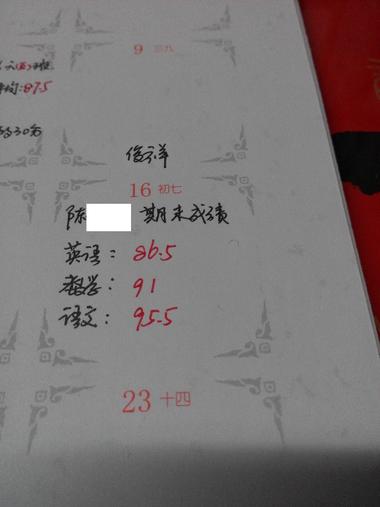 9
六(五)班
均:87.5
30名
俊祥
16 初七
陈 期末成绩
英语:86.5
数学:91
语文:95.5
23 十四